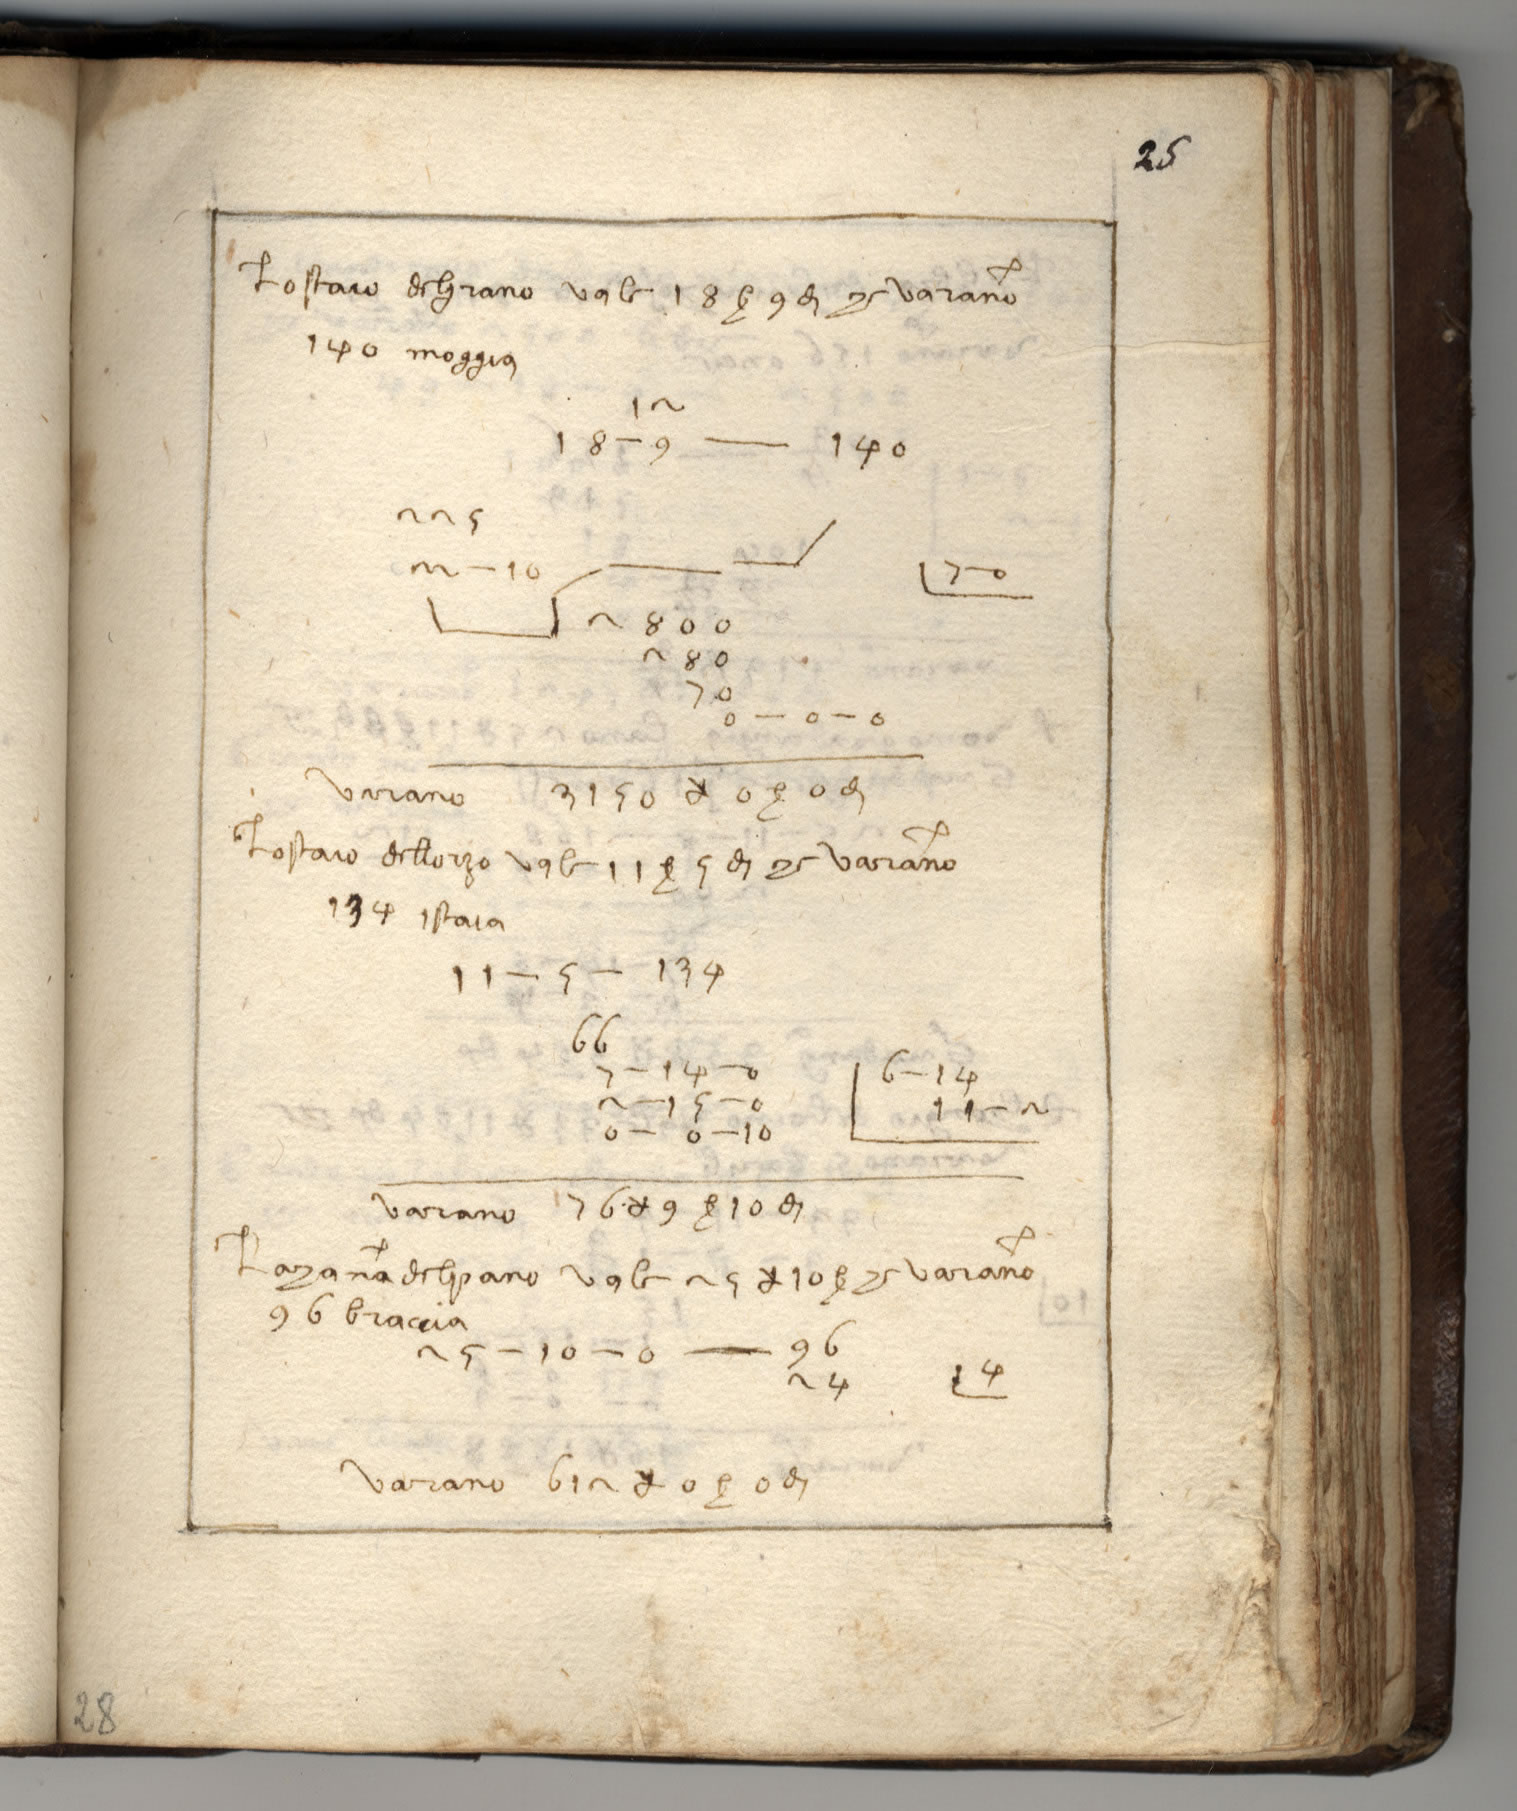 25
Lo staio del grano vale 18 ß 9 d che varano
140 moggia
12
18 — 9 — 140
225
22 — 10 7 — 0
2800
280
70
0 — 0 — 0
varano 3150 ₰ 0 ß 0 d
Lo staio dellorzo vale 11 ß 5 d che varano
134 istaia
11 — 5 — 134
66
7 — 14 — 0 6 — 14
2 — 15 — 0 11 — 2
0 — 0 — 10
varano 76 ₰ 9 ß 10 d
La canna del pano vale 25 ₰ 10 ß che varano
96 braccia
25 — 10 — 0 — 96
24 4
varano 612 ₰ 0 ß 0 d
28